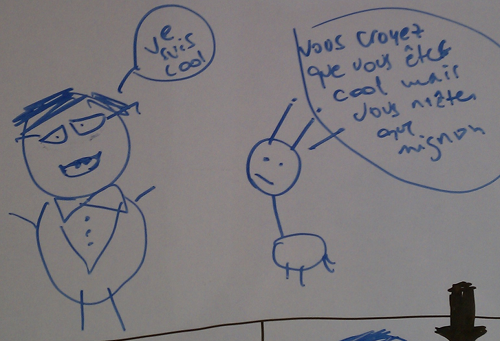 Je
suis
cool
vous croyez
que vous êtes
cool mais
vous n'êtes
que
mignon